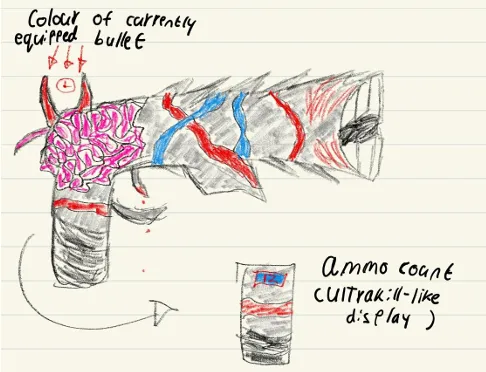 Colour of currently
equipped bullet
Ammo count
(Ultrakill-like
display )